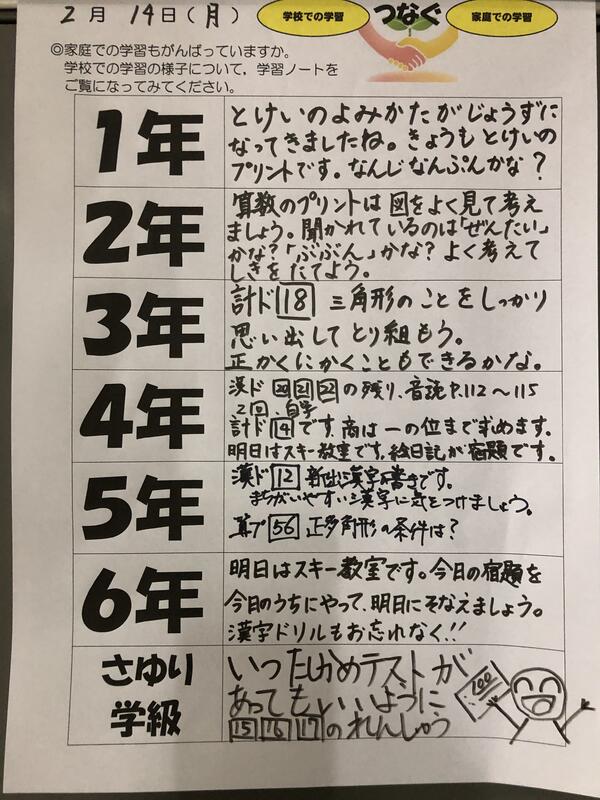 2月 14日(月)
学校での学習
つなぐ
家庭での学習
◎家庭での学習もがんばっていますか。
学校での学習の様子について，学習ノートを
ご覧になってみてください。
1年
とけいのよみかたがじょうずに
なってきましたね。きょうもとけいの
プリントです。なんじなんぷんかな？
2年
算数のプリントは図をよく見て考え
ましょう。聞かれているのは「ぜんたい」
かな？「ぶぶん」かな？よく考えて
しきをたてよう。
3年
計ド18 三角形のことをしっかり
思い出してとり組もう。
正かくにかくこともできるかな。
4年
漢ド 20 21 22 の残り、音読P.112～115
2回、自学
計ド14です。商は一の位まで求めます。
明日はスキー教室です。絵日記が宿題です。
5年
漢ド12 新出漢字書きです。
まちがいやすい漢字に気をつけましょう。
算プ56 正多角形の条件は？
6年
明日はスキー教室です。今日の宿題を
今日のうちにやって、明日にそなえましょう。
漢字ドリルもお忘れなく!!
さゆり
学級
いつたしかめテストが
あってもいいように
15 16 17のれんしゅう
100